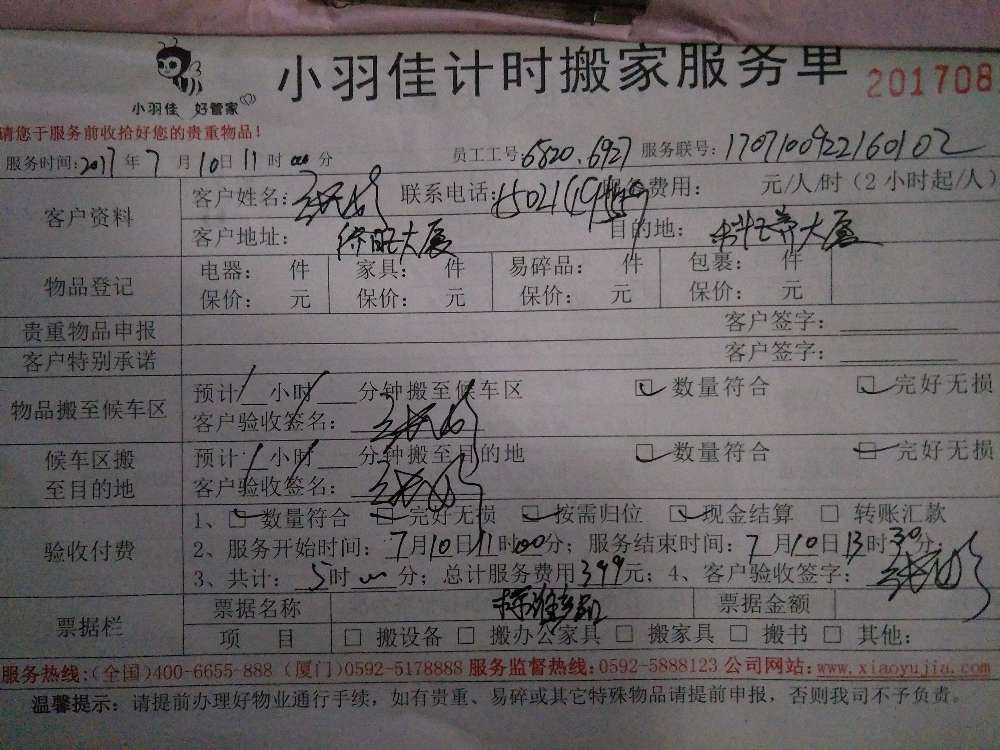 小羽佳计时搬家服务单 201708
小羽佳 好管家
请您于服务前收拾好您的贵重物品！
服务时间：2017年7月10日11时00分 员工工号：6820.6927 服务联号：1707100922160102
客户资料 客户姓名： 联系电话： 服务费用： 元/人/时（2小时起/人）
客户地址： 大厦 目的地： 大厦
物品登记 电器： 件 家具： 件 易碎品： 件 包裹： 件
保价： 元 保价： 元 保价： 元 保价： 元
贵重物品申报 客户签字：
客户特别承诺 客户签字：
物品搬至候车区 预计/小时/分钟搬至候车区 数量符合 完好无损
客户验收签名：
候车区搬至目的地 预计/小时/分钟搬至目的地 数量符合 完好无损
客户验收签名：
验收付费 1、数量符合 完好无损 按需归位 现金结算 转账汇款
2、服务开始时间：7月10日11时00分；服务结束时间：7月10日13时30分；
3、共计：5时 分；总计服务费用399元；4、客户验收签字：
票据栏 票据名称 票据金额
项 目 搬设备 搬办公家具 搬家具 搬书 其他：
服务热线：（全国）400-6655-888（厦门）0592-5178888 服务监督热线：0592-5888123 公司网站：www.xiaoyujia.com
温馨提示：请提前办理好物业通行手续，如有贵重、易碎或其它特殊物品请提前申报，否则我司不予负责。